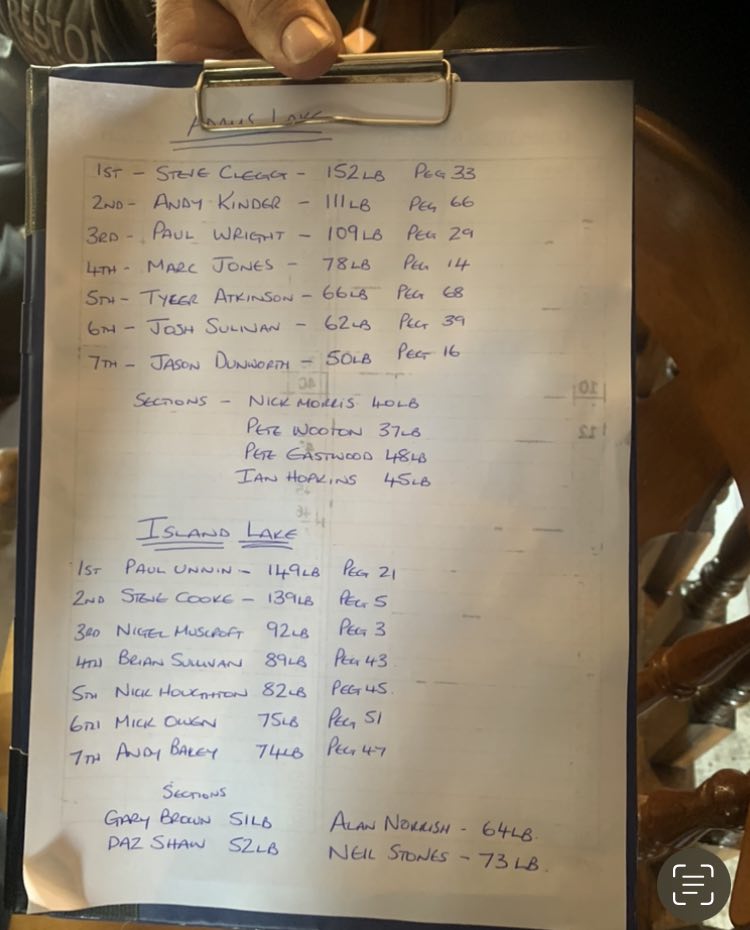 RESTON
ADAMS LAKE
1ST - STEVE CLEGG - 152LB PEG 33
2ND - ANDY KINDER - 111LB PEG 66
3RD - PAUL WRIGHT - 109LB PEG 29
4TH - MARC JONES - 78LB PEG 14
5TH - TYLER ATKINSON - 66LB PEG 68
6TH - JOSH SULIVAN - 62LB PEG 39
7TH - JASON DUNWORTH - 50LB PEG 16
SECTIONS - NICK MORRIS 40LB
PETE WOOTON 37LB
PETE EASTWOOD 48LB
IAN HOPKINS 45LB
ISLAND LAKE
1ST PAUL UNNIN - 149LB PEG 21
2ND STEVE COOKE - 139LB PEG 5
3RD NIGEL MUSCROFT 92LB PEG 3
4TH BRIAN SULLIVAN 89LB PEG 43
5TH NICK HOUGHTON 82LB PEG 45.
6TH MICK OWEN 75LB PEG 51
7TH ANDY BALEY 74LB PEG 47
SECTIONS
GARY BROWN 51LB ALAN NORRISH - 64LB.
DAZ SHAW 52LB NEIL STONES - 73LB.